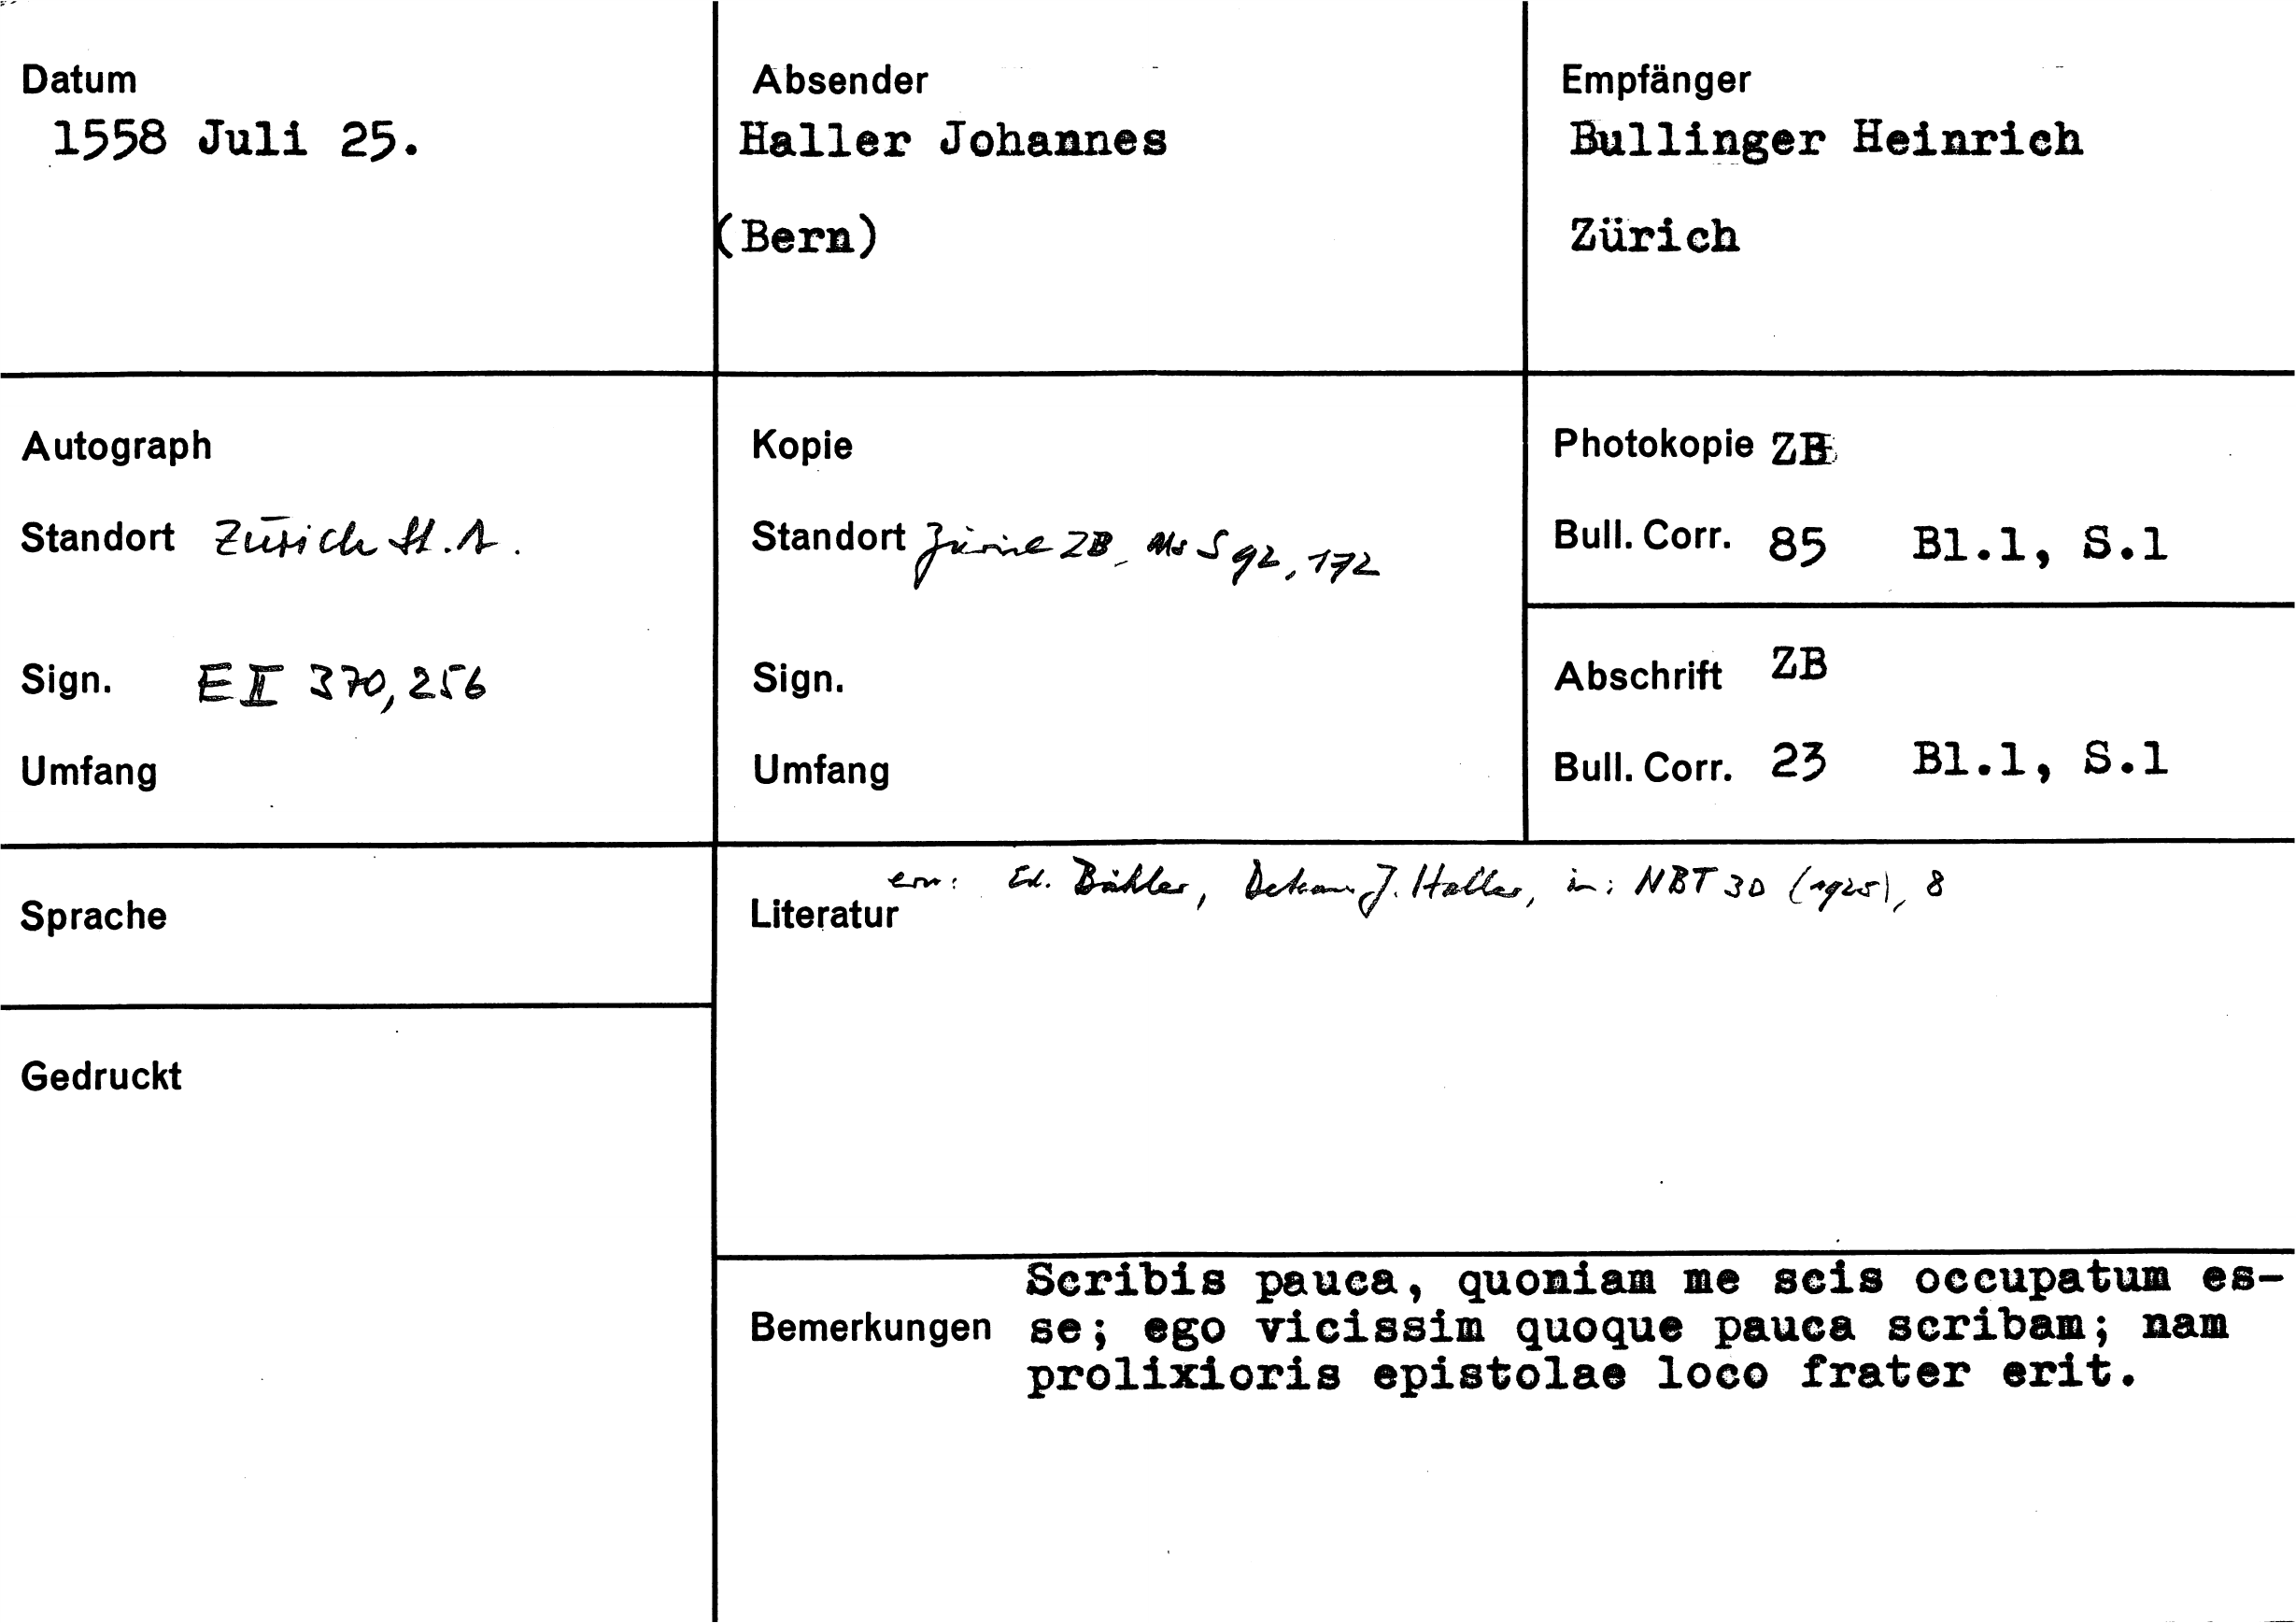 Datum
1558 Juli 25.
Absender
Haller Johannes
(Bern)
Empfänger
Bullinger Heinrich
Zürich
Autograph
Standort Zürich St.A.
Sign. E II 370, 256
Umfang
Kopie
Standort Zürich ZB, Ms S 92, 172
Sign.
Umfang
Photokopie ZB
Bull. Corr. 85 Bl.1, S.1
Abschrift ZB
Bull. Corr. 23 Bl.1, S.1
Sprache
Gedruckt
Literatur
Ed. Bähler, Dekan J. Haller, in: NBT 30 (1925), 8
Bemerkungen
Scribis pauca, quoniam me scis occupatum es-
se; ego vicissim quoque pauca scribam; nam
prolixioris epistolae loco frater erit.